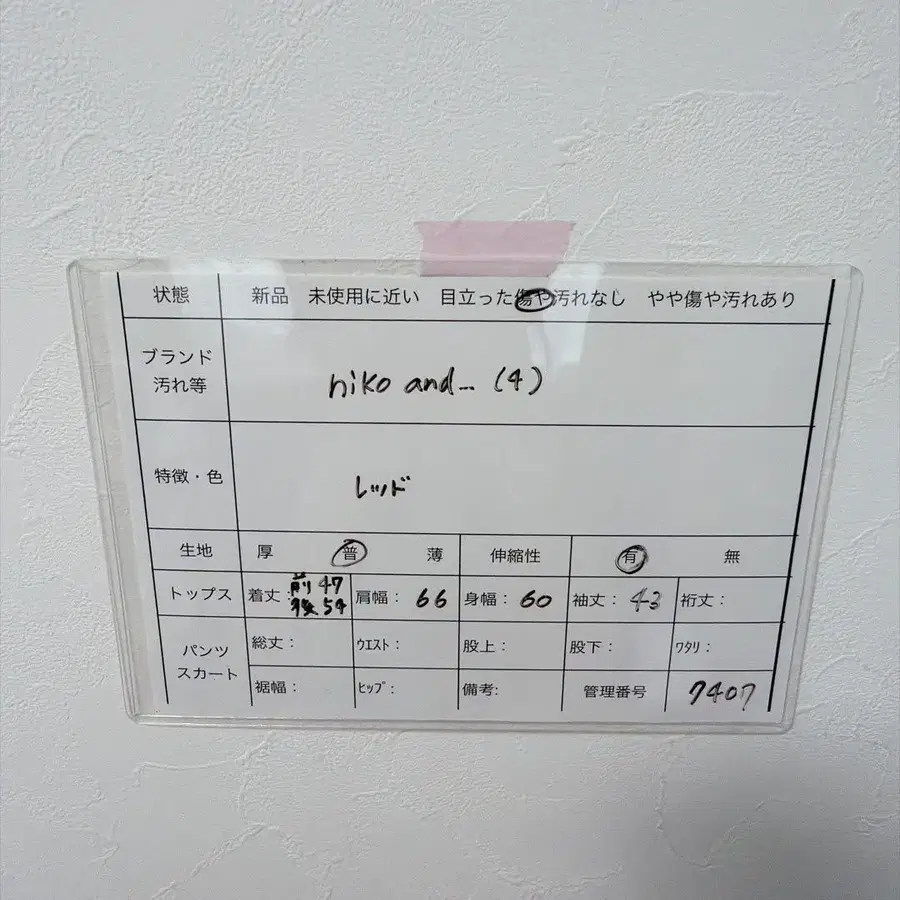 状態 新品 未使用に近い 目立った傷や汚れなし やや傷や汚れあり
ブランド
汚れ等
niko and... (4)
特徴・色
レッド
生地 厚 普 薄 伸縮性 有 無
トップス 着丈: 前 47 後 54 肩幅: 66 身幅: 60 袖丈: 43 裄丈:
パンツ
スカート
総丈: ウエスト: 股上: 股下: ワタリ:
裾幅: ヒップ: 備考: 管理番号 7407